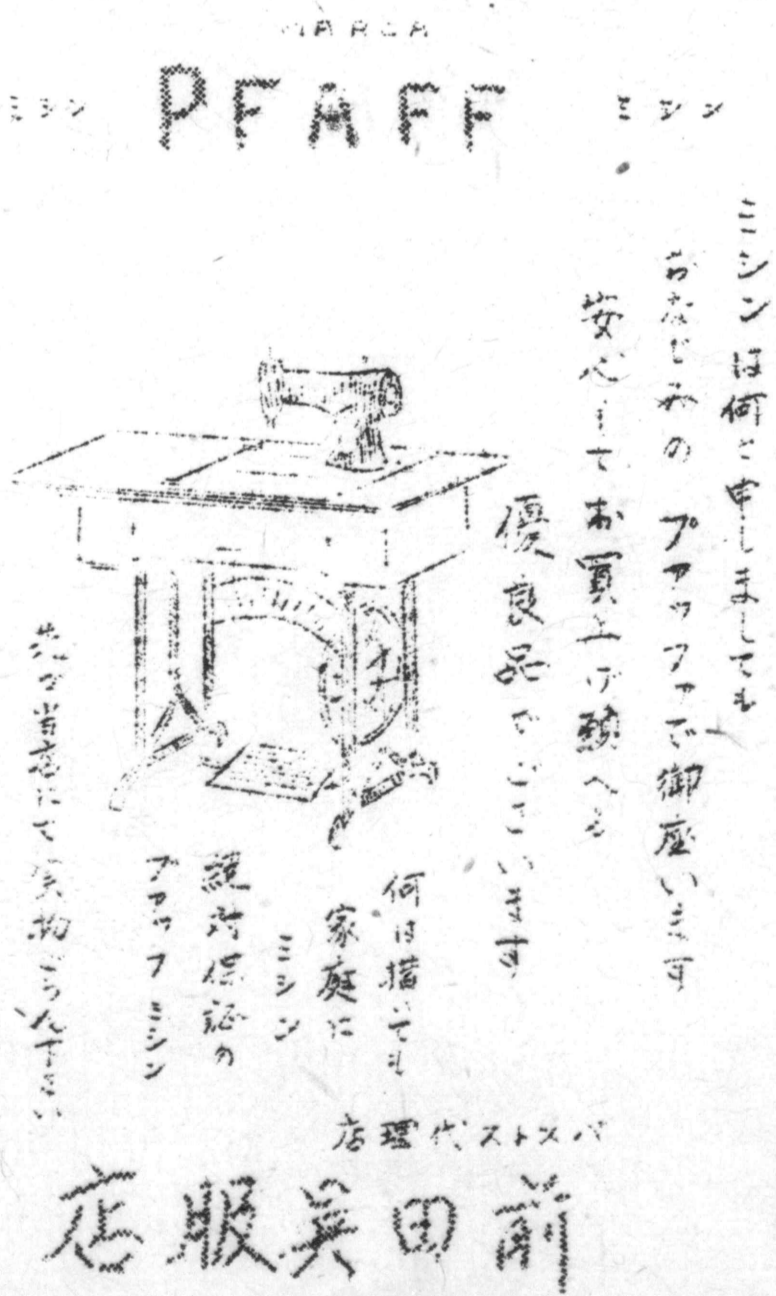 MARCA
ミシン PFAFF ミシン
ミシンは何と申しましても
おなじみの プアッフアで御座います
安心してお買上げ願へる
優良品でございます
何は措いても
家庭に
ミシン
絶対保証の
プアッフミシン
先づ当店にて実物ごらん下さい
バストス代理店
前田呉服店